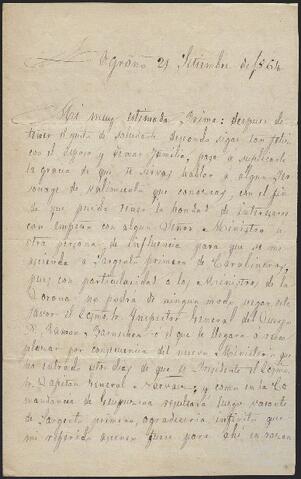 Logroño 21 Setiembre de 1864
Mi muy estimada Prima: despues de
tener el gusto de saludarte deseando sigas con feliz
con el Esposo y demas familia, paso a suplicarte
la gracia de que te sirvas hablar a algun Per
sonage de valimiento que conozcas, con el fin
de que pueda tener la bondad de interesarse
con empeño con algun Señor Ministro u
otra persona de influencia para que se me
ascienda a Sargento primero de Carabineros,
pues con particularidad a los Ministros de la
Corona, no podra de ningun modo negar este
favor el Exmo. Sr. Inspector General del Cuerpo
D. Ramon o el que le llegara a reem
plazar por consecuencia del nuevo Ministerio que
ha entrado estos dias de que es Presidente el Exmo.
Sr. Capitan General Narvaez; y como en la Co
mandancia de Guipuzcoa resultará luego vacante
de Sargento primero, agradeceria infinito que
mi referido ascenso fuese para ahi en razon